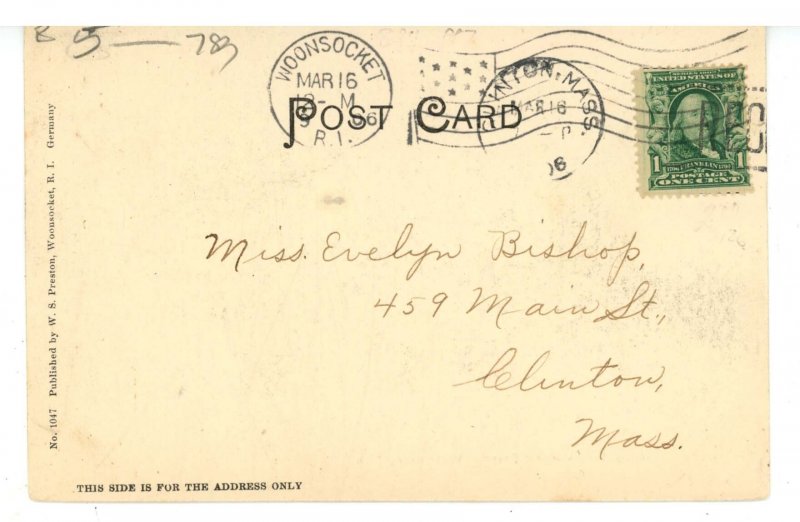 5 — 789
WOONSOCKET
MAR 16
M
06
R.I.
POST CARD
CLINTON, MASS.
MAR 16
P
06
SERIES 1902
UNITED STATES OF
AMERICA
FRANKLIN
1
POSTAGE
ONE CENT
Miss. Evelyn Bishop,
459 Main St.,
Clinton,
Mass.
No. 1047 Published by W. S. Preston, Woonsocket, R. I. Germany
THIS SIDE IS FOR THE ADDRESS ONLY